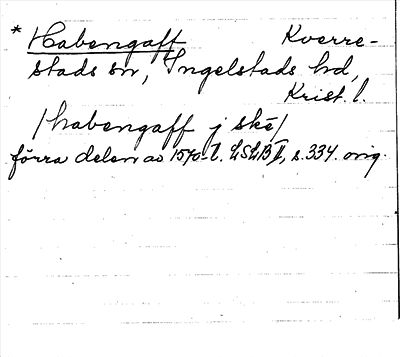 * Habengaff Kverre-
stads sn, Ingelstads hd,
Krist. l.
/habengaff j skē/
förra delen av 1570-t. LSLB II, s. 334. orig.